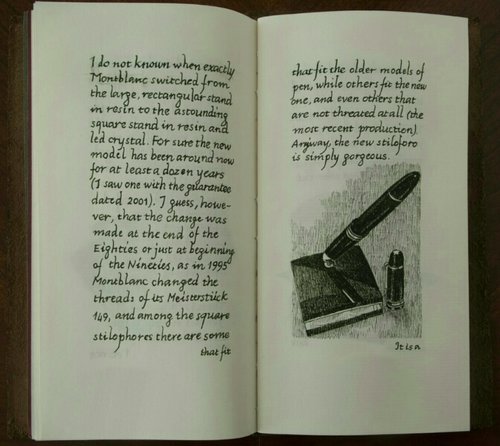 I do not known when exactly
Montblanc switched from
the large, rectangular stand
in resin to the astounding
square stand in resin and
led crystal. For sure the new
model has been around now
for at least a dozen years
(I saw one with the guarantee
dated 2001). I guess, howe-
ver, that the change was
made at the end of the
Eighties or just at beginning
of the Nineties, as in 1995
Montblanc changed the
threads of its Meisterstück
149, and among the square
stilophores there are some
that fit
that fit the older models of
pen, while others fit the new
one, and even others that
are not threated at all (the
most recent production).
Anyway, the new stiloforo
is simply gorgeous.
It is a